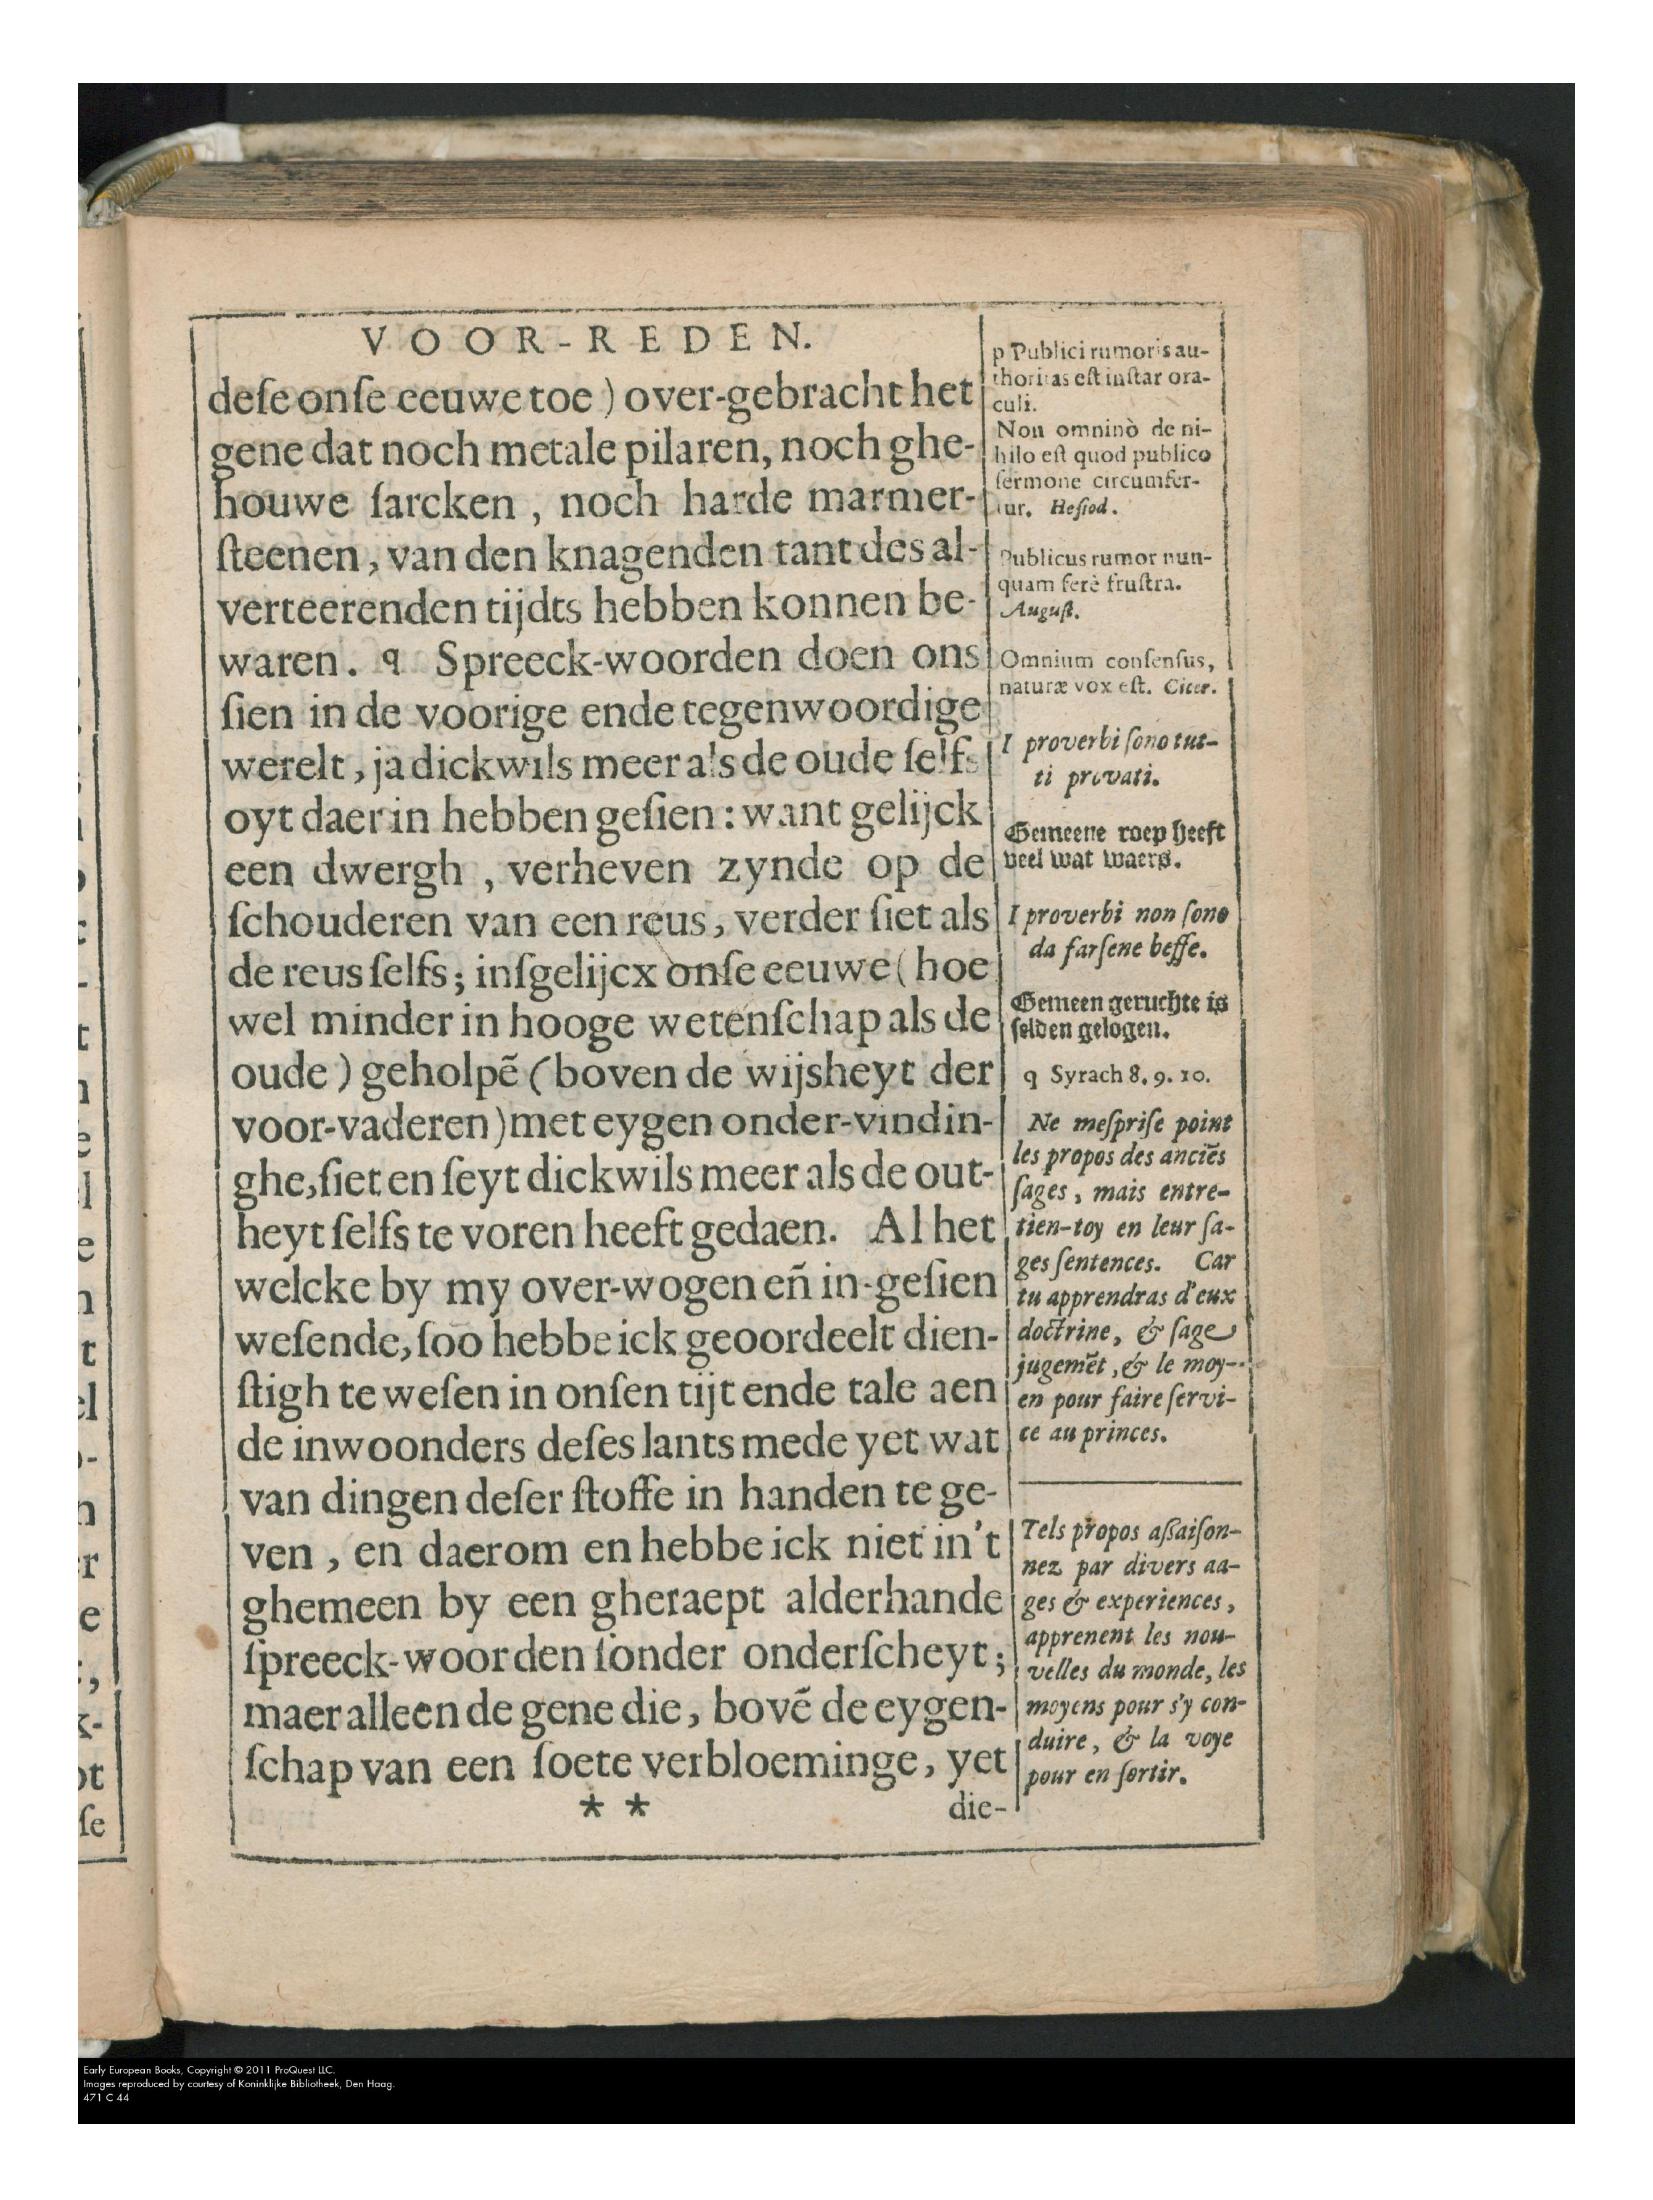 VOOR-REDEN.
deſe onſe eeuwe toe) over-gebracht het
gene dat noch metale pilaren, noch ghe-
houwe ſarcken, noch harde marmer-
ſteenen, van den knagenden tant des al-
verteerenden tijdts hebben konnen be-
waren. q Spreeck-woorden doen ons
ſien in de voorige ende tegenwoordige
werelt, ja dickwils meer als de oude ſelfs
oyt daer in hebben geſien: want gelijck
een dwergh, verheven zynde op de
ſchouderen van een reus, verder ſiet als
de reus ſelfs; inſgelijcx onſe eeuwe (hoe
wel minder in hooge wetenſchap als de
oude) geholpẽ (boven de wijsheyt der
voor-vaderen) met eygen onder-vindin-
ghe, ſiet en ſeyt dickwils meer als de out-
heyt ſelfs te voren heeft gedaen. Al het
welcke by my over-wogen eñ in-geſien
weſende, ſoo hebbe ick geoordeelt dien-
ſtigh te weſen in onſen tijt ende tale aen
de inwoonders deſes lants mede yet wat
van dingen deſer ſtoffe in handen te ge-
ven, en daerom en hebbe ick niet in't
ghemeen by een gheraept alderhande
ſpreeck-woorden ſonder onderſcheyt;
maer alleen de gene die, bovẽ de eygen-
ſchap van een ſoete verbloeminge, yet
** die-
p Publici rumoris au-
thoritas eſt inſtar ora-
culi.
Non omninò de ni-
hilo eſt quod publico
ſermone circumfer-
tur. Heſiod.
Publicus rumor nun-
quam ferè fruſtra.
Auguſt.
Omnium conſenſus,
naturæ vox eſt. Cicer.
I proverbi ſono tut-
ti provati.
Gemeene roep heeft
veel wat waers.
I proverbi non ſono
da farſene beffe.
Gemeen geruchte is
ſelden gelogen.
q Syrach 8. 9. 10.
Ne meſpriſe point
les propos des anciẽs
ſages, mais entre-
tien-toy en leur ſa-
ges ſentences. Car
tu apprendras d'eux
doctrine, & ſage
jugemẽt, & le moy-
en pour faire ſervi-
ce au princes.
Tels propos aßaiſon-
nez par divers aa-
ges & experiences,
apprenent les nou-
velles du monde, les
moyens pour s'y con-
duire, & la voye
pour en ſortir.
Early European Books, Copyright © 2011 ProQuest LLC.
Images reproduced by courtesy of Koninklijke Bibliotheek, Den Haag.
471 C 44